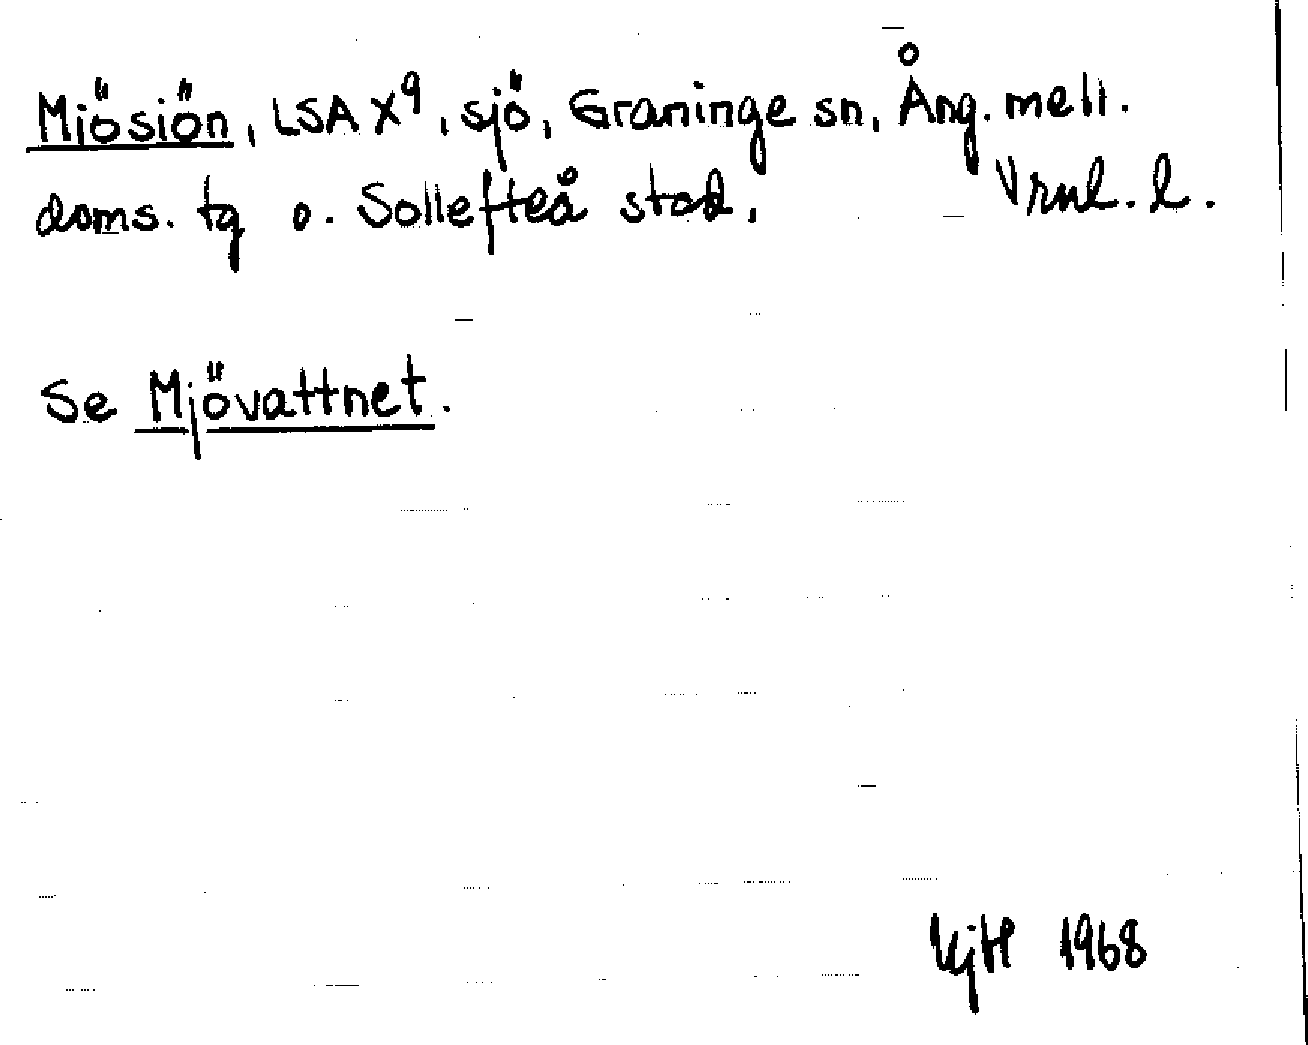 Miösiön, LSA X9, sjö, Graninge sn, Ång. mell.
doms. tg o. Sollefteå stad.
Se Mjövattnet.
1968